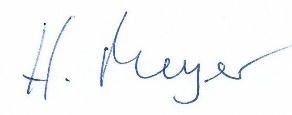 H. Meyer